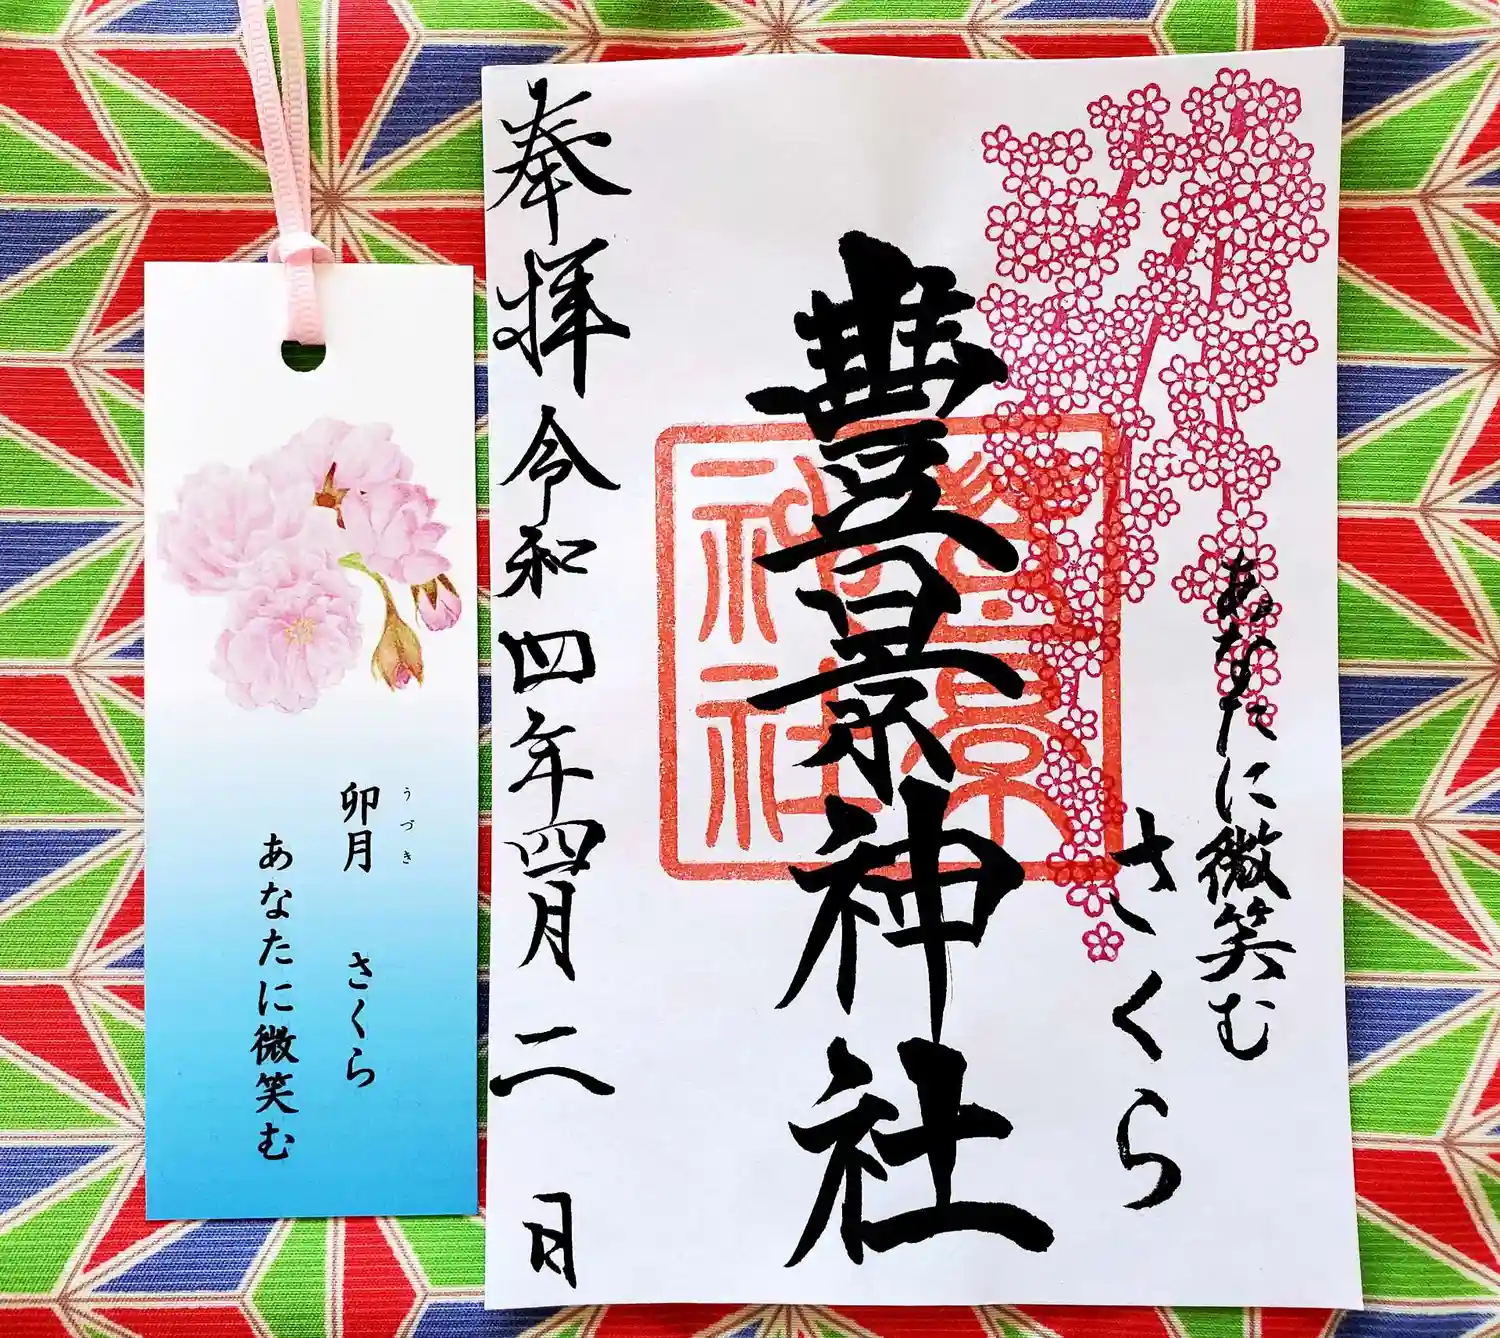 あなたに微笑む
さくら
豐景神社
豐景
神社
奉拝 令和四年四月二日
うづき
卯月 さくら
あなたに微笑む